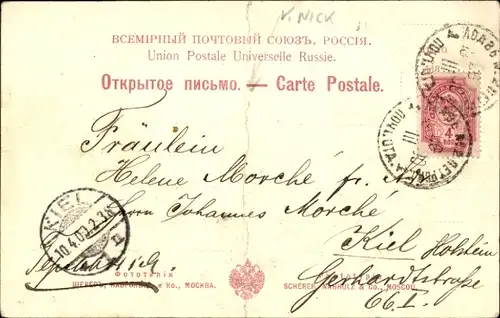 V. NICK
ВСЕМІРНЫЙ ПОЧТОВЫЙ СОЮЗЪ. РОССІЯ.
Union Postale Universelle Russie.
Открытое письмо. — Carte Postale.
4
Fräulein
Helene Morché fr. A.
Herrn Johannes Morché
Kiel Holstein
Gerhardtstraße
66.I.
KIEL
10.4.02.2-3N
Германія
ФОТОТИПІЯ
ШЕРЕРЪ, НАБГОЛЬЦЪ и Ко., МОСКВА.
SCHERER, NABHOLZ & Co., MOSCOU.